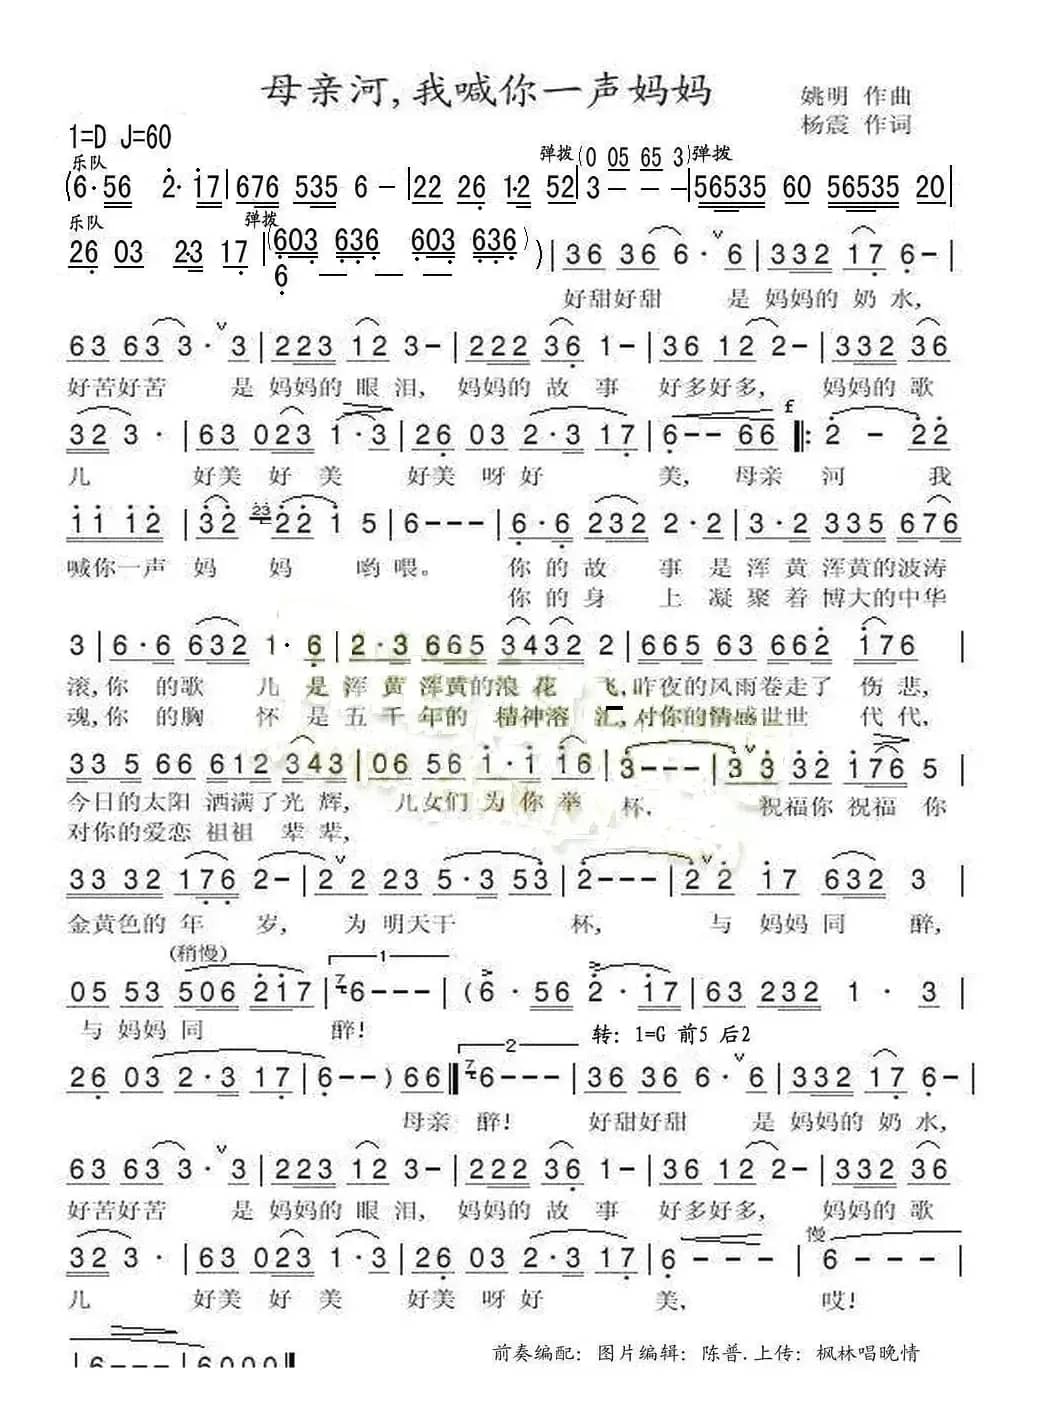 母亲河,我喊你一声妈妈
姚明 作曲
杨震 作词
1=D J=60
乐队 弹拨 (0 05 65 3) 弹拨
(6·56 2·17|676 535 6 -|22 26 12 52|3 - - -|56535 60 56535 20|
乐队 弹拨
26 03 23 17|(603 636 603 636)
6 - - -)|36 36 6·ˇ6|332 17 6-|
好甜好甜 是 妈妈的 奶 水,
63 63 3·ˇ3|223 12 3-|222 36 1-|36 12 2-|332 36
好苦好苦 是 妈妈的 眼 泪, 妈妈的 故 事 好多好多, 妈妈的 歌
f
32 3·|63 023 1·3|26 03 2·3 17|6-- 66‖:2 - 22
儿 好美 好 美 好美 呀 好 美, 母亲 河 我
11 12|32 23 22 1 5|6---|6·6 232 2·2|3·2 335 676
喊你一声 妈 妈 哟 喂。 你 的 故 事 是 浑 黄 浑黄的波涛
你 的 身 上 凝 聚 着 博大的中华
3|6·6 632 1·6|2·3 665 3432 2|665 63 662 176|
滚,你 的 歌 儿 是 浑 黄 浑黄的 浪 花 飞,昨夜的风雨卷走了 伤 悲,
魂,你 的 胸 怀 是 五 千 年 的 精神溶 汇,对你的情感世世 代 代,
33 5 66 66 612 343|06 56 1·1 16|3---|3ˇ3 32 176 5
今日的太阳 洒满了光 辉, 儿女们 为 你 举 杯. 祝福你 祝福 你
对你的爱恋 祖祖 辈 辈,
33 32 176 2-|2ˇ2 23 5·3 53|2---|2ˇ2 17 632 3|
金黄色的 年 岁, 为 明天干 杯, 与 妈妈 同 醉,
(稍慢) 1
05 53 506 217|7 6---|(6·56 2·17|63 232 1·3|
与 妈妈 同 醉! 转: 1=G 前5 后2
2
26 03 2·3 17|6--)66‖7 6---|36 36 6·ˇ6|332 17 6-|
母亲 醉! 好甜好甜 是 妈妈的 奶 水,
63 63 3·ˇ3|223 12 3-|222 36 1-|36 12 2-|332 36
好苦好苦 是 妈妈的 眼 泪, 妈妈的 故 事 好多好多, 妈妈的 歌
慢
32 3·|63 023 1·3|26 03 2·3 17|6---|6---|
儿 好美 好 美 好美 呀 好 美, 哎!
|6---|6000‖
前奏编配: 图片编辑: 陈普.上传: 枫林唱晚情